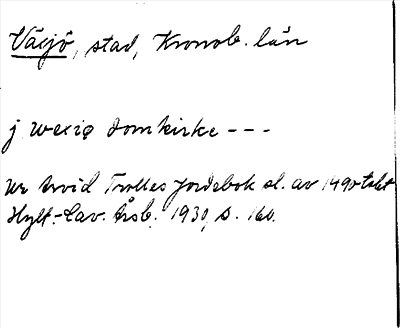 Växjö, stad, Kronob. län
j wexiø domkirke - - -
ur Arvid Trolles jordebok sl. av 1490 talet
Hylt.-Cav. Årsb. 1930, s. 160.